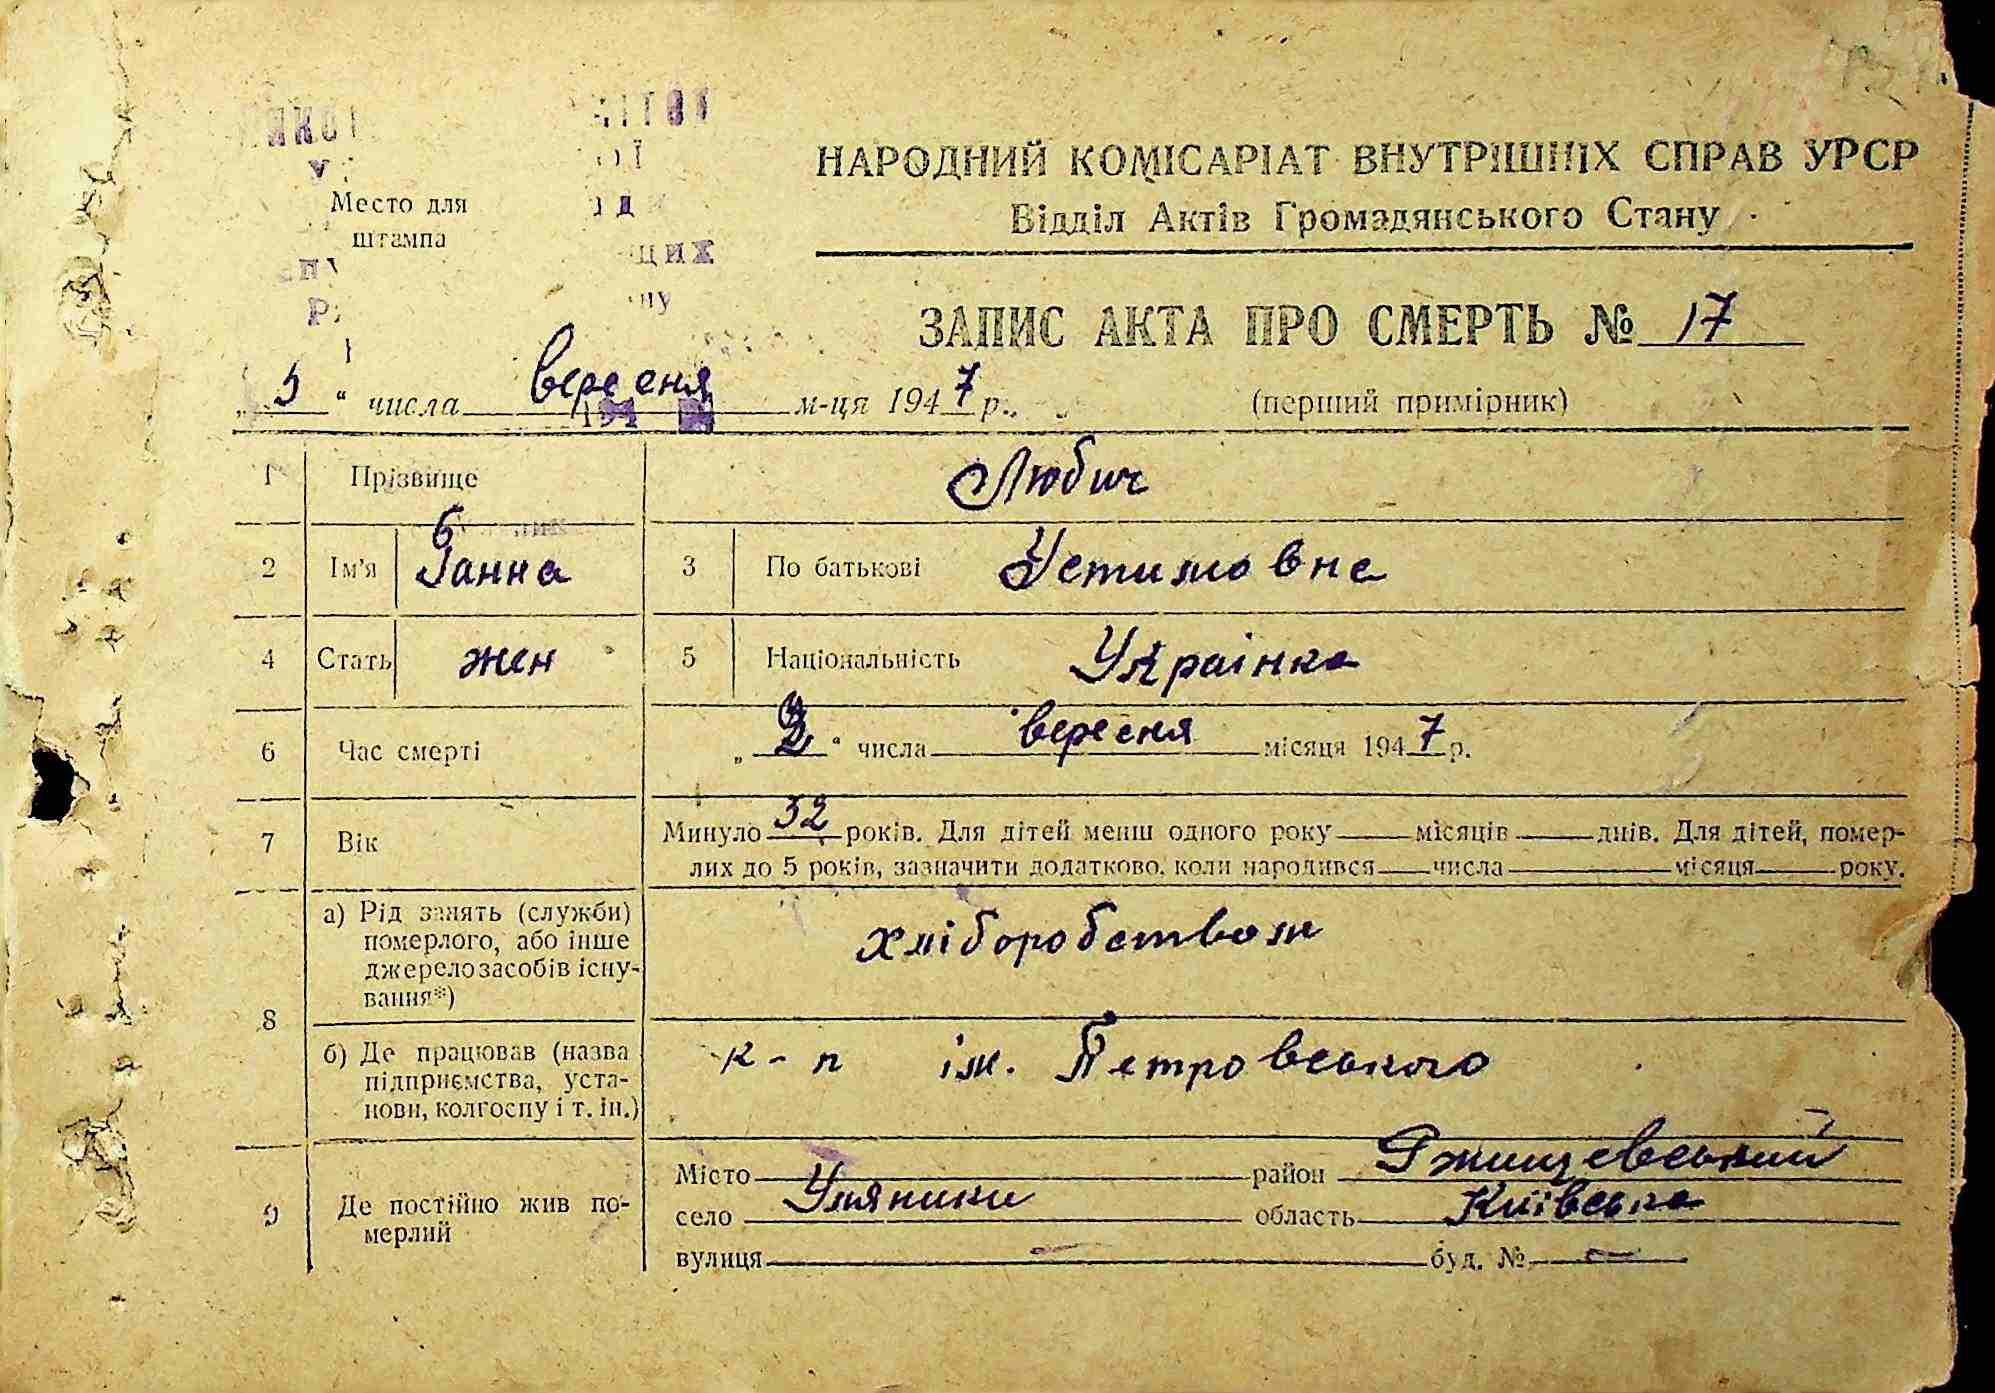 НАРОДНИЙ КОМІСАРІАТ ВНУТРІШНІХ СПРАВ УРСР
Відділ Актів Громадянського Стану
Место для
штампа
ЗАПИС АКТА ПРО СМЕРТЬ № 17
„ 5 “ числа вересня м-ця 1947 р.
(перший примірник)
1 Прізвище Любич
2 Ім'я Ганна 3 По батькові Устимовна
4 Стать жен 5 Національність Українка
6 Час смерті „ 2 “ числа вересня місяця 1947 р.
7 Вік Минуло 32 років. Для дітей менш одного року місяців днів. Для дітей, помер-
лих до 5 років, зазначити додатково, коли народився числа місяця року.
8 а) Рід занять (служби)
померлого, або інше
джерело засобів існу-
вання*)
хліборобством
б) Де працював (назва
підприємства, уста-
нови, колгоспу і т. ін.)
к-п ім. Петровського
9 Де постійно жив по-
мерлий
Місто район Ржищевський
село Уляники область Київська
вулиця — буд. № —